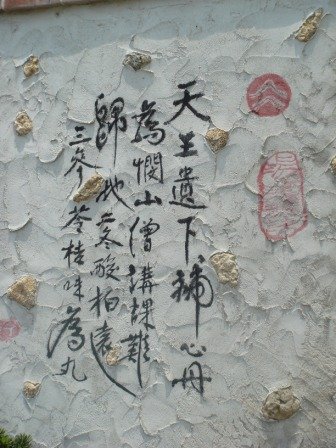 天王遺下補心丹
為憫山僧講課難
歸地二冬酸柏遠
三參苓桔味為丸